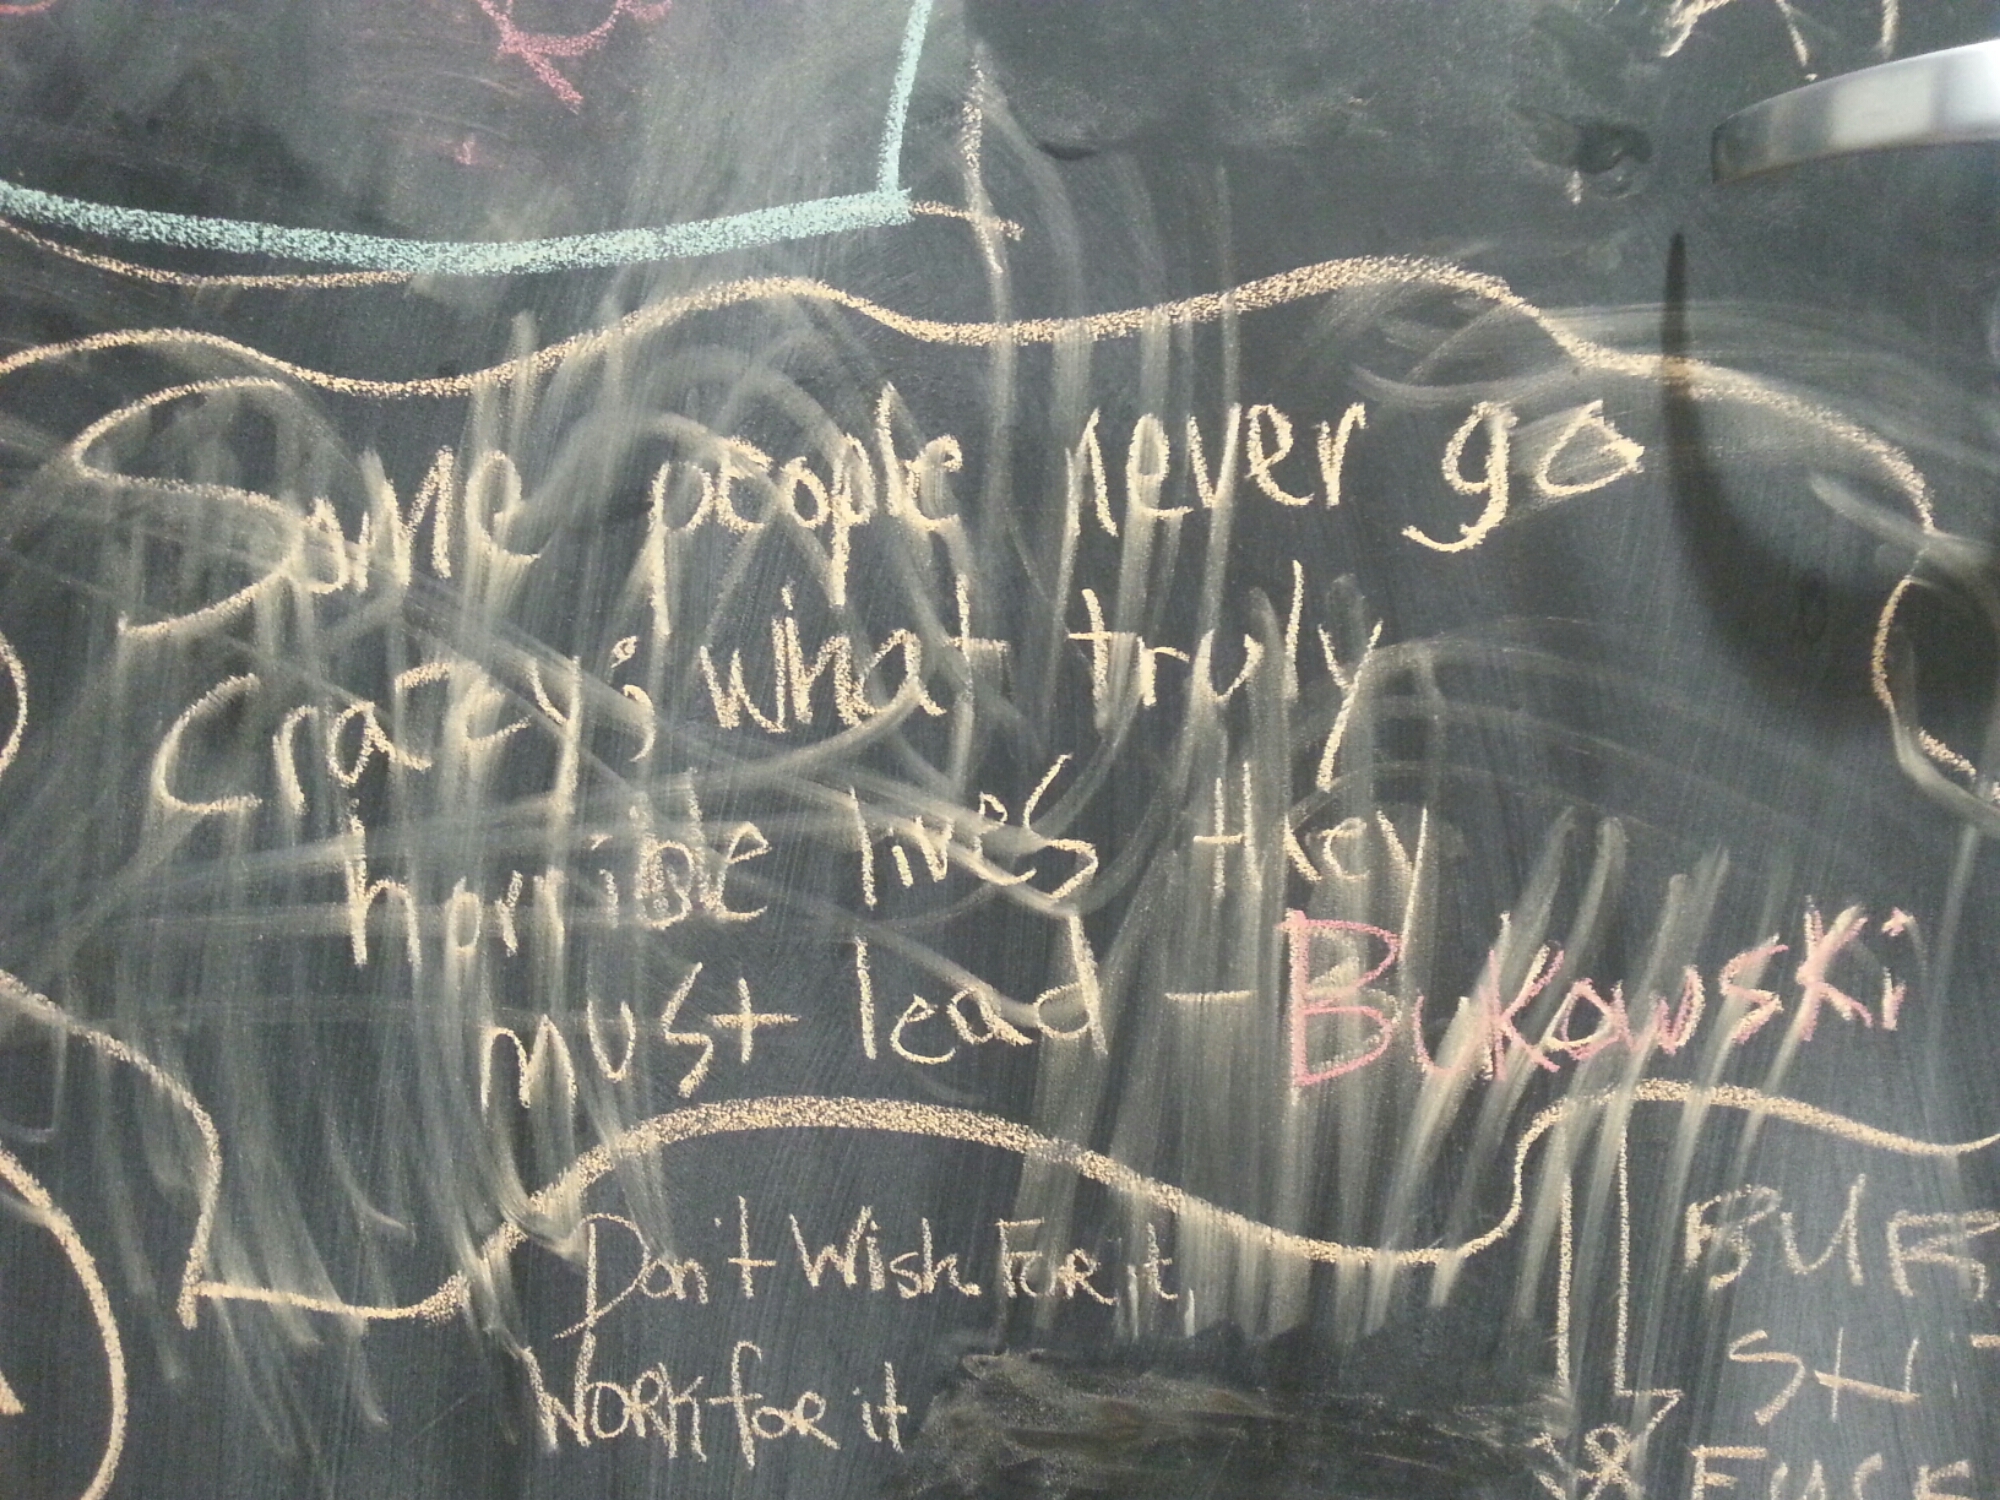 Some people never go
crazy; what truly
horrible lives they
must lead - Bukowski
Don't Wish For it,
Work for it